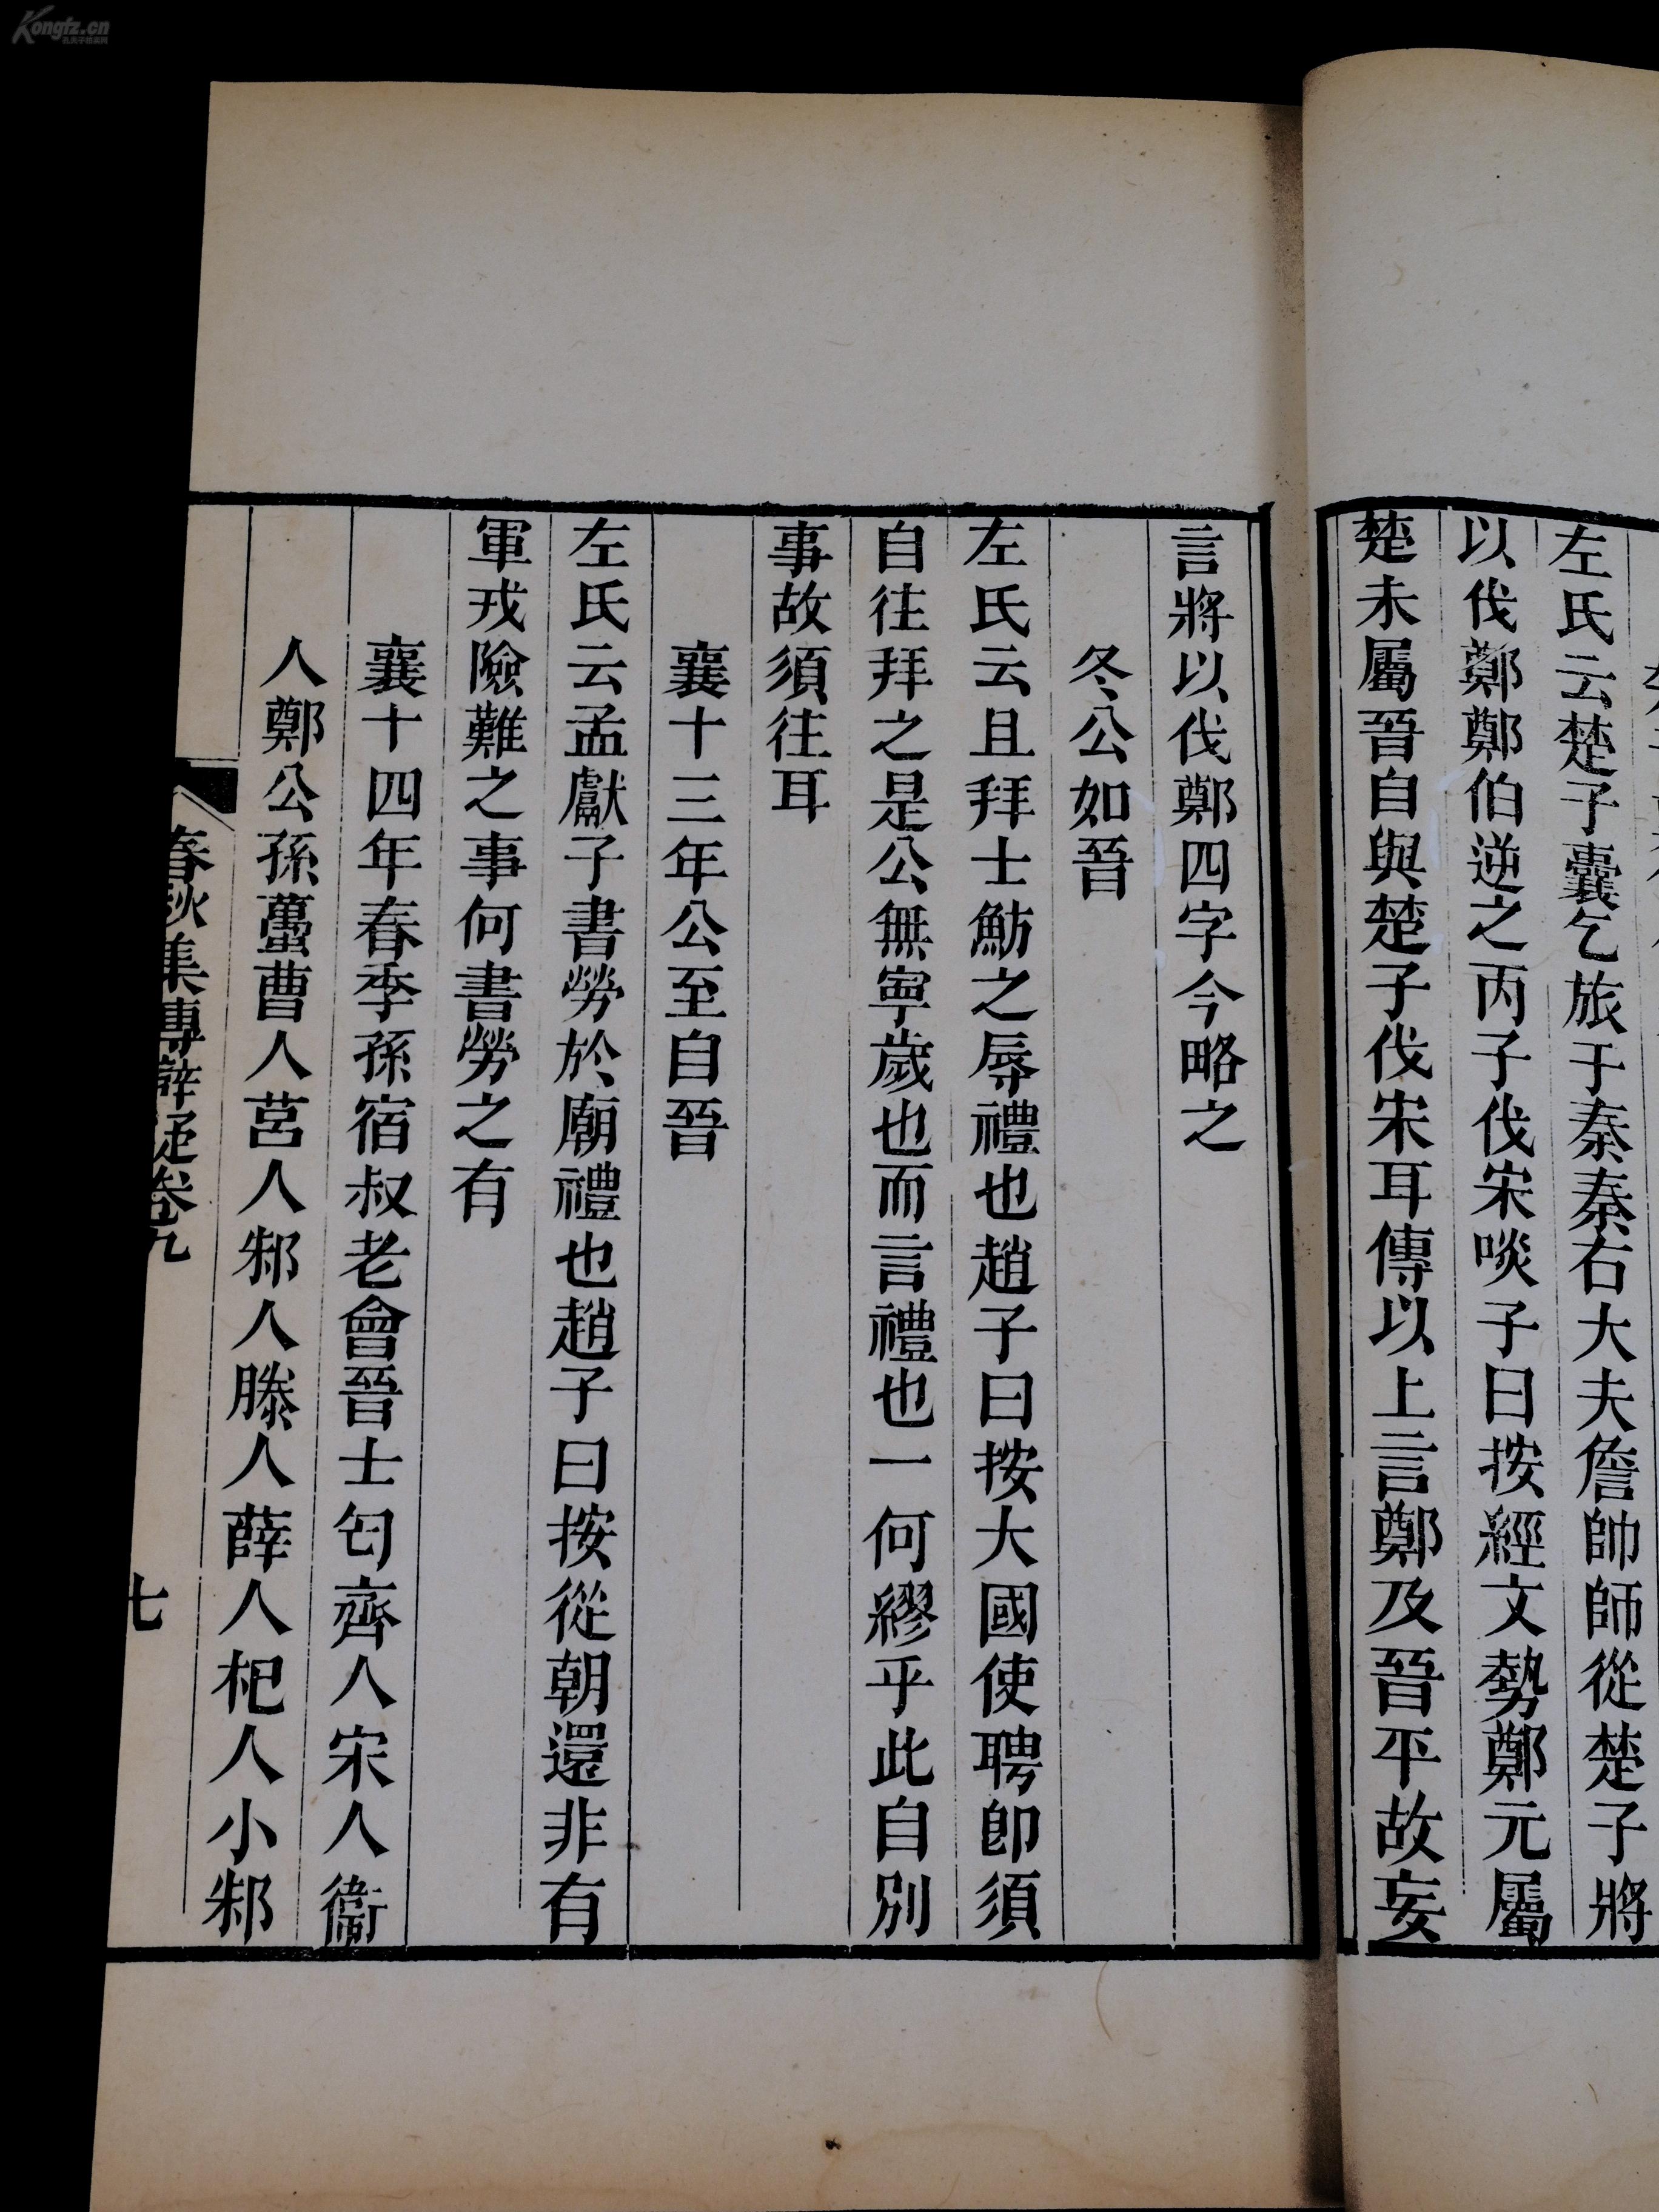 左氏云楚子囊乞旅于秦秦右大夫詹帥師從楚子將
以伐鄭鄭伯逆之丙子伐宋啖子曰按經文勢鄭元屬
楚未屬晉自與楚子伐宋耳傳以上言鄭及晉平故妄
言將以伐鄭四字今略之
冬公如晉
左氏云且拜士魴之辱禮也趙子曰按大國使聘卽須
自往拜之是公無寧歲也而言禮也一何繆乎此自別
事故須往耳
襄十三年公至自晉
左氏云孟獻子書勞於廟禮也趙子曰按從朝還非有
軍戎險難之事何書勞之有
襄十四年春季孫宿叔老會晉士匄齊人宋人衞
人鄭公孫蠆曹人莒人邾人滕人薛人杞人小邾
春秋集傳辯疑卷九
七
Kongfz.cn
孔夫子旧书网